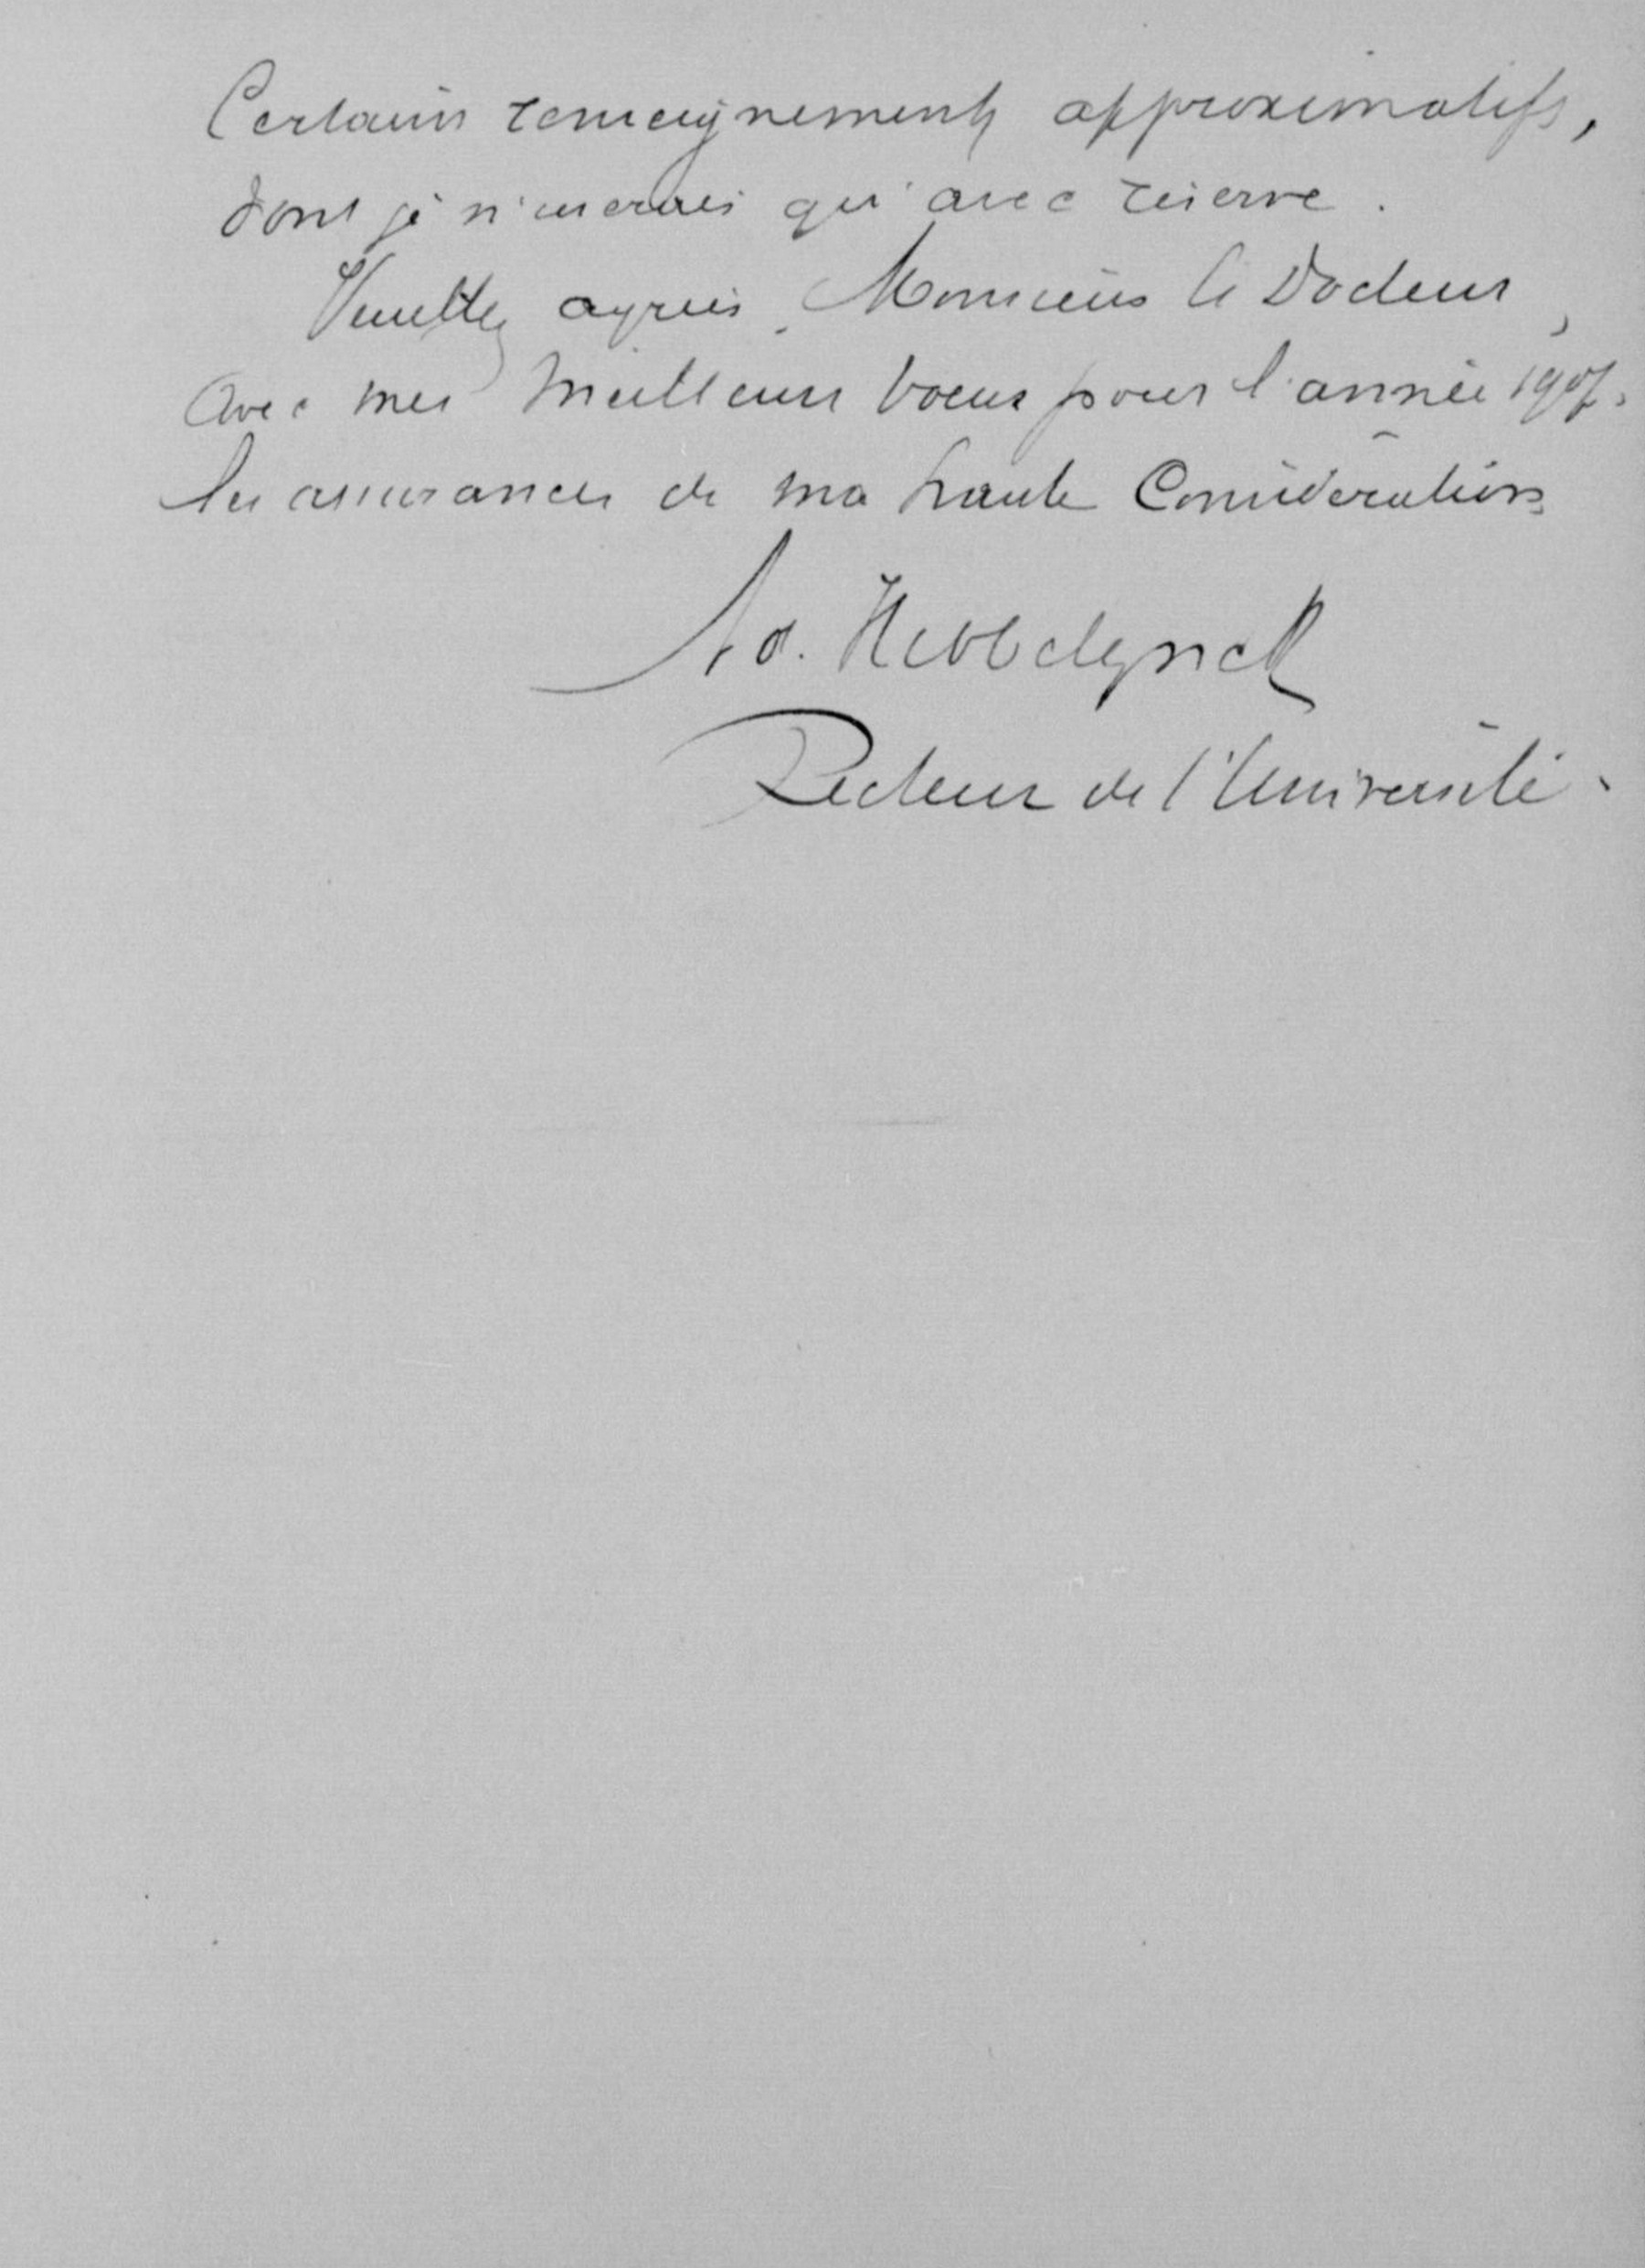 Certains renseignements approximatifs,
dont je n'userais qu'avec réserve.
Veuillez agréer, Monsieur le Docteur,
avec mes meilleurs voeux pour l'année 1907,
les assurances de ma haute Considération
Ad. Hebbelynck
Recteur de l'Université.